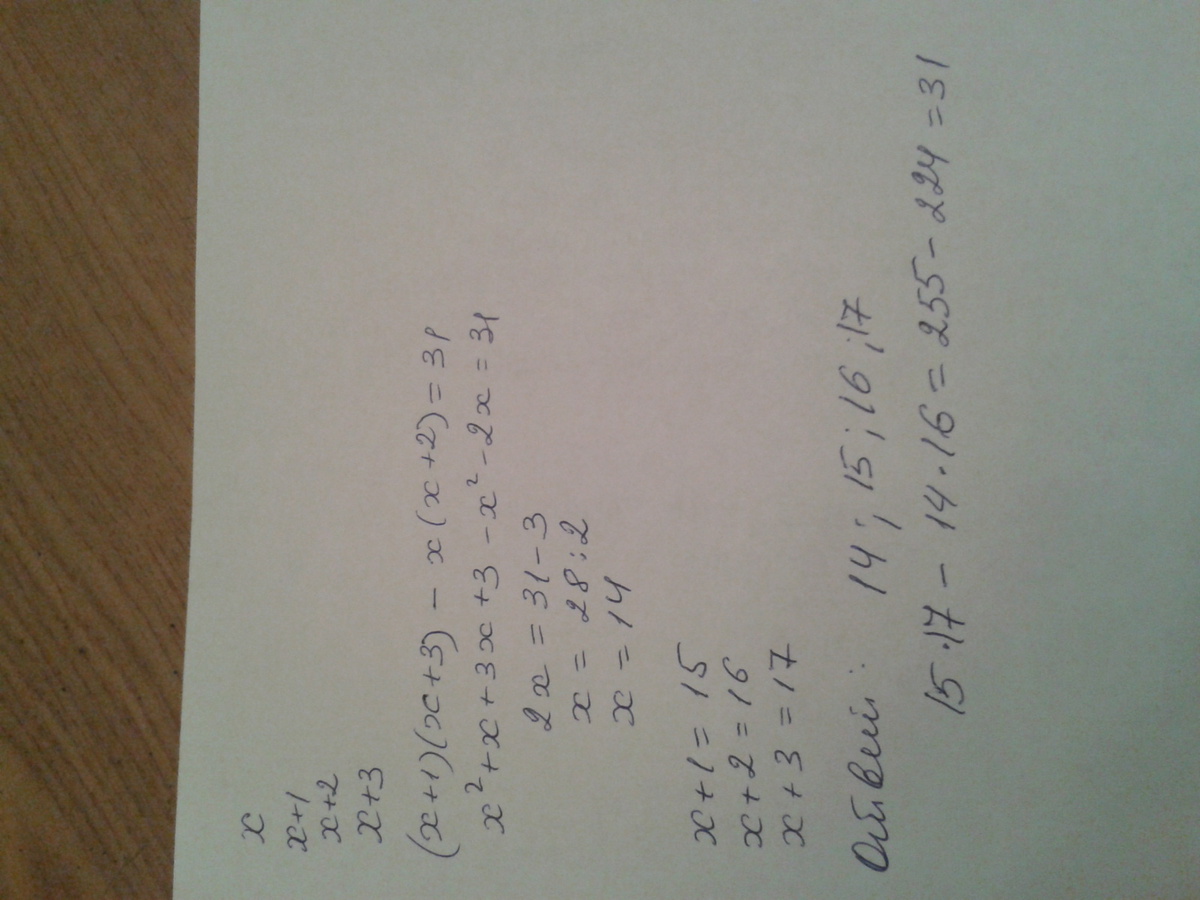 x
x+1
x+2
x+3
(x+1)(x+3) - x(x+2) = 31
x²+x+3x+3-x²-2x=31
2x = 31-3
x = 28:2
x = 14
x+1=15
x+2=16
x+3=17
Ответ: 14; 15; 16; 17
15·17 - 14·16 = 255 - 224 = 31